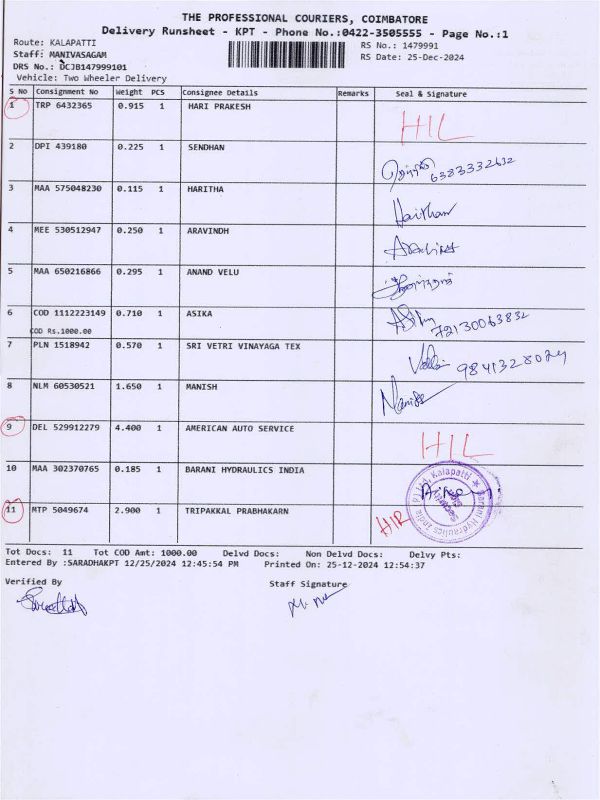 THE PROFESSIONAL COURIERS, COIMBATORE
Delivery Runsheet - KPT - Phone No.:0422-3505555 - Page No.:1
Route: KALAPATTI
RS No.: 1479991
Staff: MANIVASAGAM
RS Date: 25-Dec-2024
DRS No.: DCJB147999101
Vehicle: Two Wheeler Delivery
S No Consignment No Weight PCS Consignee Details Remarks Seal & Signature
1 TRP 6432365 0.915 1 HARI PRAKESH HIL
2 DPI 439180 0.225 1 SENDHAN 6383332632
3 MAA 575048230 0.115 1 HARITHA Harithan
4 MEE 530512947 0.250 1 ARAVINDH
5 MAA 650216866 0.295 1 ANAND VELU
6 COD 1112223149 0.710 1 ASIKA 72130063832
COD Rs.1000.00
7 PLN 1518942 0.570 1 SRI VETRI VINAYAGA TEX 9841328024
8 NLM 60530521 1.650 1 MANISH Manish
9 DEL 529912279 4.400 1 AMERICAN AUTO SERVICE HIL
10 MAA 302370765 0.185 1 BARANI HYDRAULICS INDIA
Barani Hydraulics India (P) Ltd, Kalapatti
11 MTP 5049674 2.900 1 TRIPAKKAL PRABHAKARN HIR
Tot Docs: 11 Tot COD Amt: 1000.00 Delvd Docs: Non Delvd Docs: Delvy Pts:
Entered By :SARADHAKPT 12/25/2024 12:45:54 PM Printed On: 25-12-2024 12:54:37
Verified By
Staff Signature